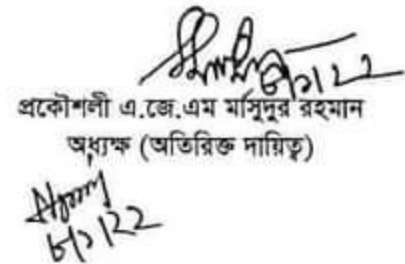 ৮/১/২২
প্রকৌশলী এ.জে.এম মাসুদুর রহমান
অধ্যক্ষ (অতিরিক্ত দায়িত্ব)
৮/১/২২